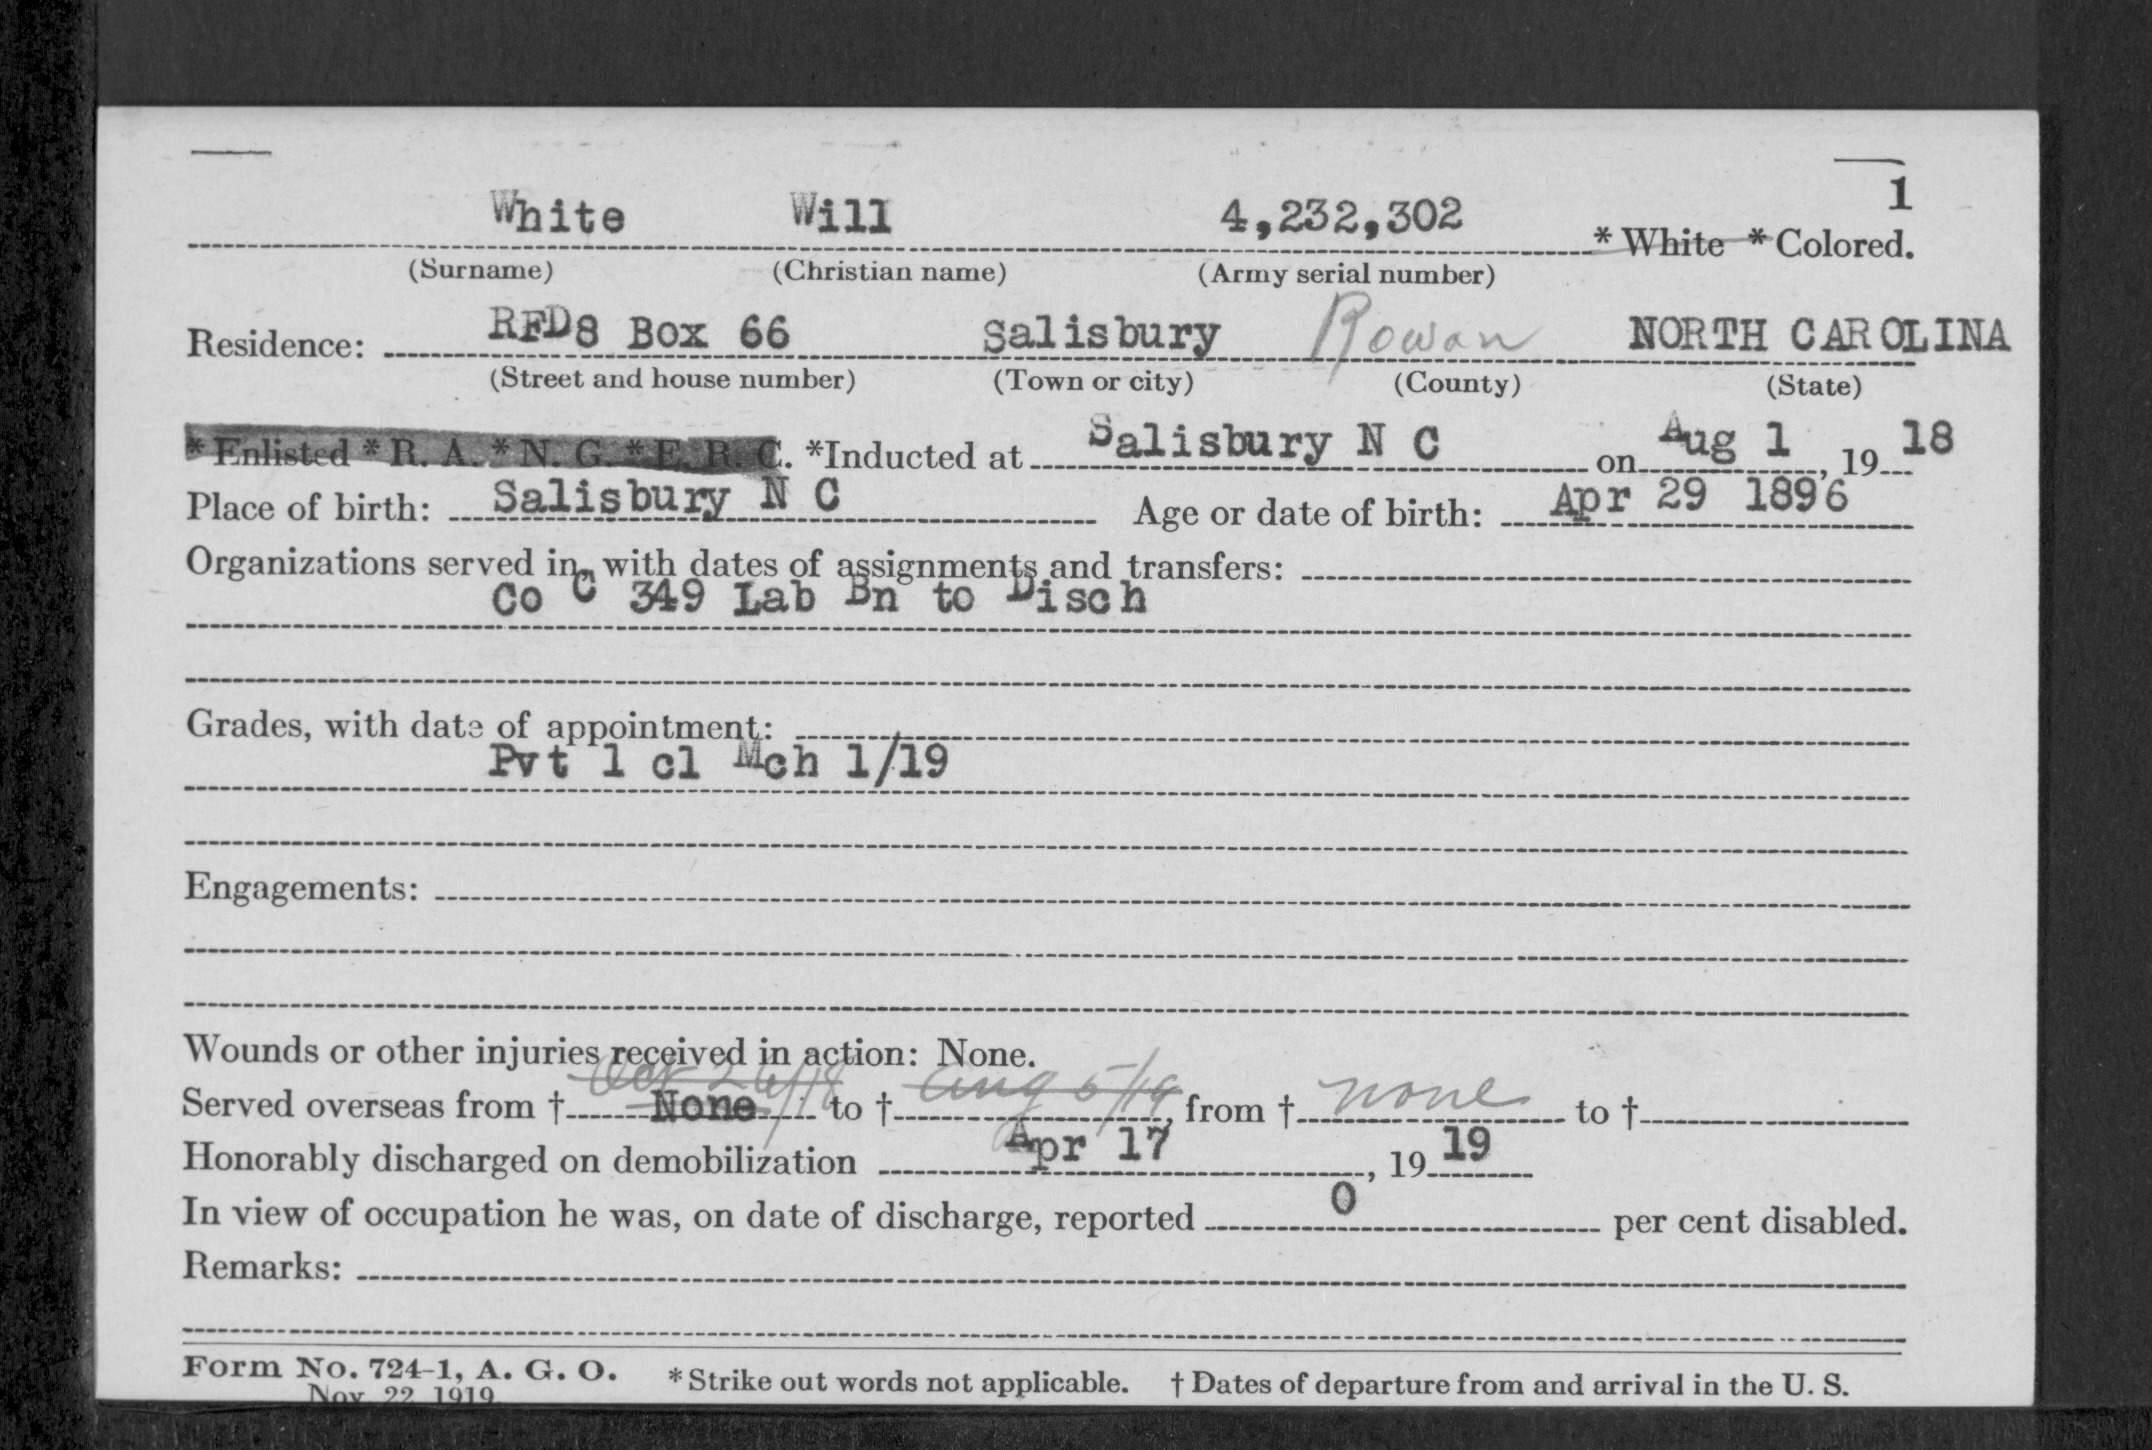 1
White Will 4,232,302 * White * Colored.
(Surname) (Christian name) (Army serial number)
Residence: RFD8 Box 66 Salisbury Rowan NORTH CAROLINA
(Street and house number) (Town or city) (County) (State)
* Enlisted * R. A. * N. G. * E. R. C. *Inducted at Salisbury N C on Aug 1, 1918
Place of birth: Salisbury N C Age or date of birth: Apr 29 1896
Organizations served in, with dates of assignments and transfers:
Co C 349 Lab Bn to Disch
Grades, with date of appointment:
Pvt 1 cl Mch 1/19
Engagements:
Wounds or other injuries received in action: None.
Oct 26/18 Aug 5/19
Served overseas from † None to †, from † none to †
Honorably discharged on demobilization Apr 17, 1919
In view of occupation he was, on date of discharge, reported 0 per cent disabled.
Remarks:
Form No. 724-1, A. G. O. * Strike out words not applicable. † Dates of departure from and arrival in the U. S.
Nov. 22, 1919.